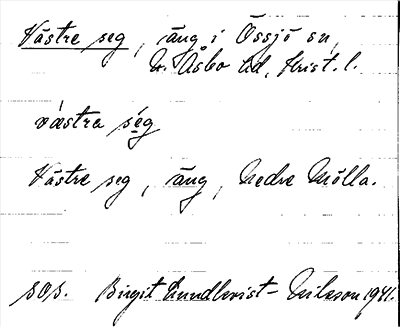 Västre seg, äng i Össjö sn,
N. Åsbo hd, Krist. l.
västra ség
Västre seg, äng, Nedre Mölla.
sos. Birgit Lundkvist-Nilsson 1941.